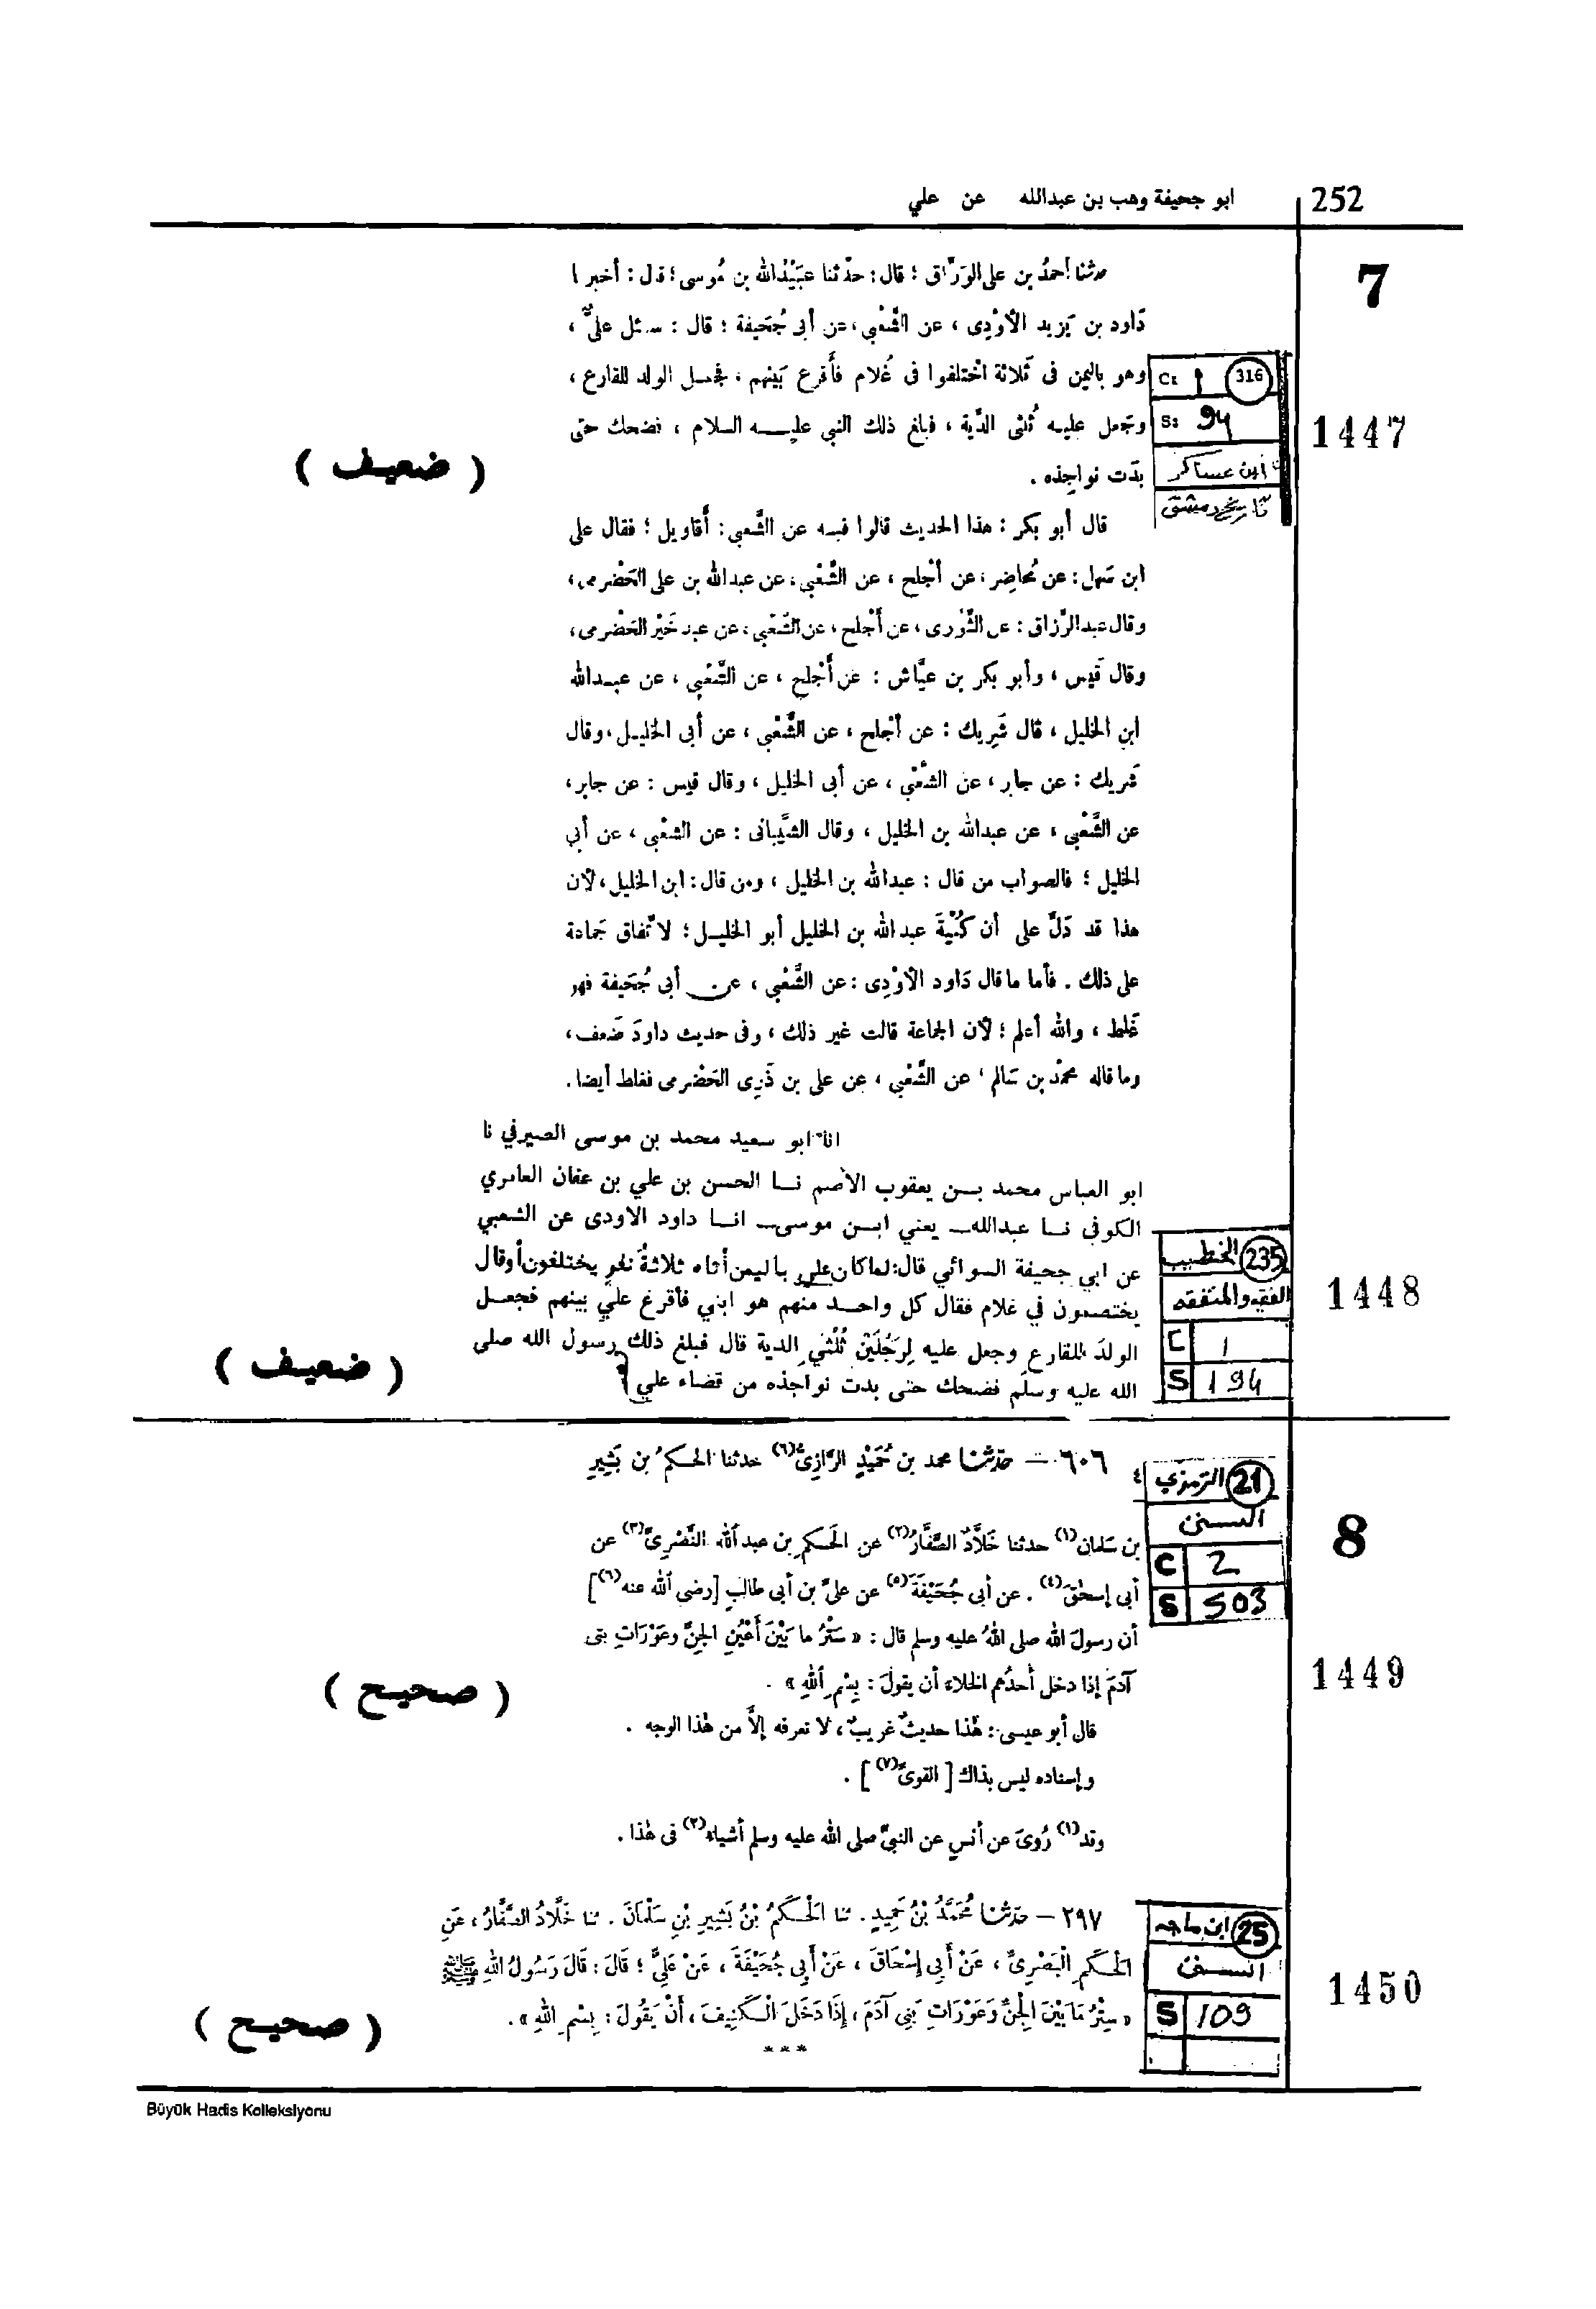 ابو جحيفة وهب بن عبدالله عن علي
252
7
حدثنا أحمدُ بن على الوَرَّاق ؛ قال : حدّثنا عبَيْدُالله بن مُوسى ؛ قال : أخبر ا
دَاود بن يَزيد الأوْدِى ، عن الشَّعْبِي ، عن أبى جُحَيفة ؛ قال : سئل علىٌّ ،
وهو باليمن فى ثَلاثة اخْتلفوا فى غُلام فأَقرع بَينهم ، فجعل الولد للقارع ،
وجَعل عليه ثُلثى الدِّية ، فبلغ ذلك النبي عليه السلام ، فضحك حتى
بدَت نواجِذه .
C: ١ 316
S: 94
ابن عساكر
تاريخ دمشق
1447
( ضعيف )
قال أبو بكر : هذا الحديث قالوا فيه عن الشَّعبي : أَقاويل ؛ فقال على
ابن سَهل : عن مُحاضِر ، عن أجْلح ، عن الشَّعْبِي ، عن عبدالله بن على الحَضْرمى ،
وقال عبدالرَّزاق : عن الثَّوْرى ، عن أَجْلح ، عن الشَّعْبِي ، عن عبد خَيْر الحَضْرمى ،
وقال قَيس ، وأبو بكر بن عيَّاش : عن أَجْلح ، عن الشَّعْبِي ، عن عبدالله
ابن الخليل ، قال شَرِيك : عن أجْلح ، عن الشَّعْبِي ، عن أبى الخليل ، وقال
شَريك : عن جابر ، عن الشَّعْبِي ، عن أبى الخليل ، وقال قيس : عن جابر ،
عن الشَّعْبِي ، عن عبدالله بن الخليل ، وقال الشَّيبانى : عن الشعْبِي ، عن أبي
الخليل ؛ فالصواب من قال : عبدالله بن الخليل ، ومن قال : ابن الخليل ، لأن
هذا قد دَلَّ على أن كُنْيَةَ عبدالله بن الخليل أبو الخليل ؛ لاتِّفاق جَماعة
على ذلك . فأما ما قال دَاود الأوْدِى : عن الشَّعْبِي ، عن أبى جُحَيفة فهو
غَلط ، والله أعلم ؛ لأن الجماعة قالت غير ذلك ، وفى حديث داودَ ضَعف ،
وما قاله محمَّد بن سَالم ، عن الشَّعْبِي ، عن على بن ذَرِى الحَضْرمى فغلط أيضا .
انا ابو سعيد محمد بن موسى الصيرفي نا
ابو العباس محمد بن يعقوب الاصم نا الحسن بن علي بن عفان العامري
الكوفي نا عبدالله – يعني ابن موسى – انا داود الاودى عن الشعبي
عن ابي جحيفة السوائي قال: لما كان علي باليمن أتاه ثلاثةُ نفرٍ يختلفون أو قال
يختصمون في غلام فقال كل واحد منهم هو ابني فأقرع علي بينهم فجعل
الولدَ للقارع وجعل عليه لِرَجُلَيْن ثُلُثَي الدية قال فبلغ ذلك رسول الله صلى
الله عليه وسلم فضحك حتى بدت نواجذه من قضاء علي
الخطيب 235
الفقيه والمتفقه
C 1
S 194
1448
( ضعيف )
8
٦٠٦ — حدّثنا محمد بن حُمَيْدٍ الرَّازِىُّ(٦) حدثنا الحكمُ بن بَشِيرِ
بن سَلمان(١) حدثنا خَلاَّدٌ الصَّفَّارُ(٢) عن الحَكمِ بن عبد الله النَّصْرِىِّ(٣) عن
أبى إسحٰقَ(٤) . عن أبى جُحَيْفَةَ(٥) عن علىِّ بن أبى طالبٍ [رضى الله عنه(٦)]
أن رسولَ الله صلى اللهُ عليه وسلم قال : « سَتْرُ ما بَيْنَ أَعْيُنِ الجنِّ وعَوْرَاتِ بنى
آدمَ إذا دخل أحدُهم الخلاءَ أن يقولَ : بِسْمِ اللهِ » .
قال أبو عيسى : هٰذا حديثٌ غريبٌ ، لا نعرفه إلاَّ من هٰذا الوجه .
وإسناده ليس بذاك [ القوىِّ(٧) ] .
وقد(١) رُوىَ عن أنسٍ عن النبىِّ صلى الله عليه وسلم أشياء(٢) فى هٰذا .
٤
الترمذي 21
السنن
C 2
S 503
1449
( صحيح )
٢٩٧ – حدّثنا مُحَمَّدُ بْنُ حُمَيدٍ . ثنا الْحَكَمُ بْنُ بَشِيرِ بْنِ سَلْمَانَ . ثنا خَلَّادٌ الصَّفَّارُ ، عَنِ
الْحَكَمِ الْبَصْرِىِّ ، عَنْ أَبِى إِسْحَاقَ ، عَنْ أَبِى جُحَيْفَةَ ، عَنْ عَلِىٍّ ؛ قَالَ : قَالَ رَسُولُ اللهِ ﷺ
« سِتْرُ مَا بَيْنَ الْجِنِّ وَعَوْرَاتِ بَنِى آدَمَ ، إِذَا دَخَلَ الْكَنِيفَ ، أَنْ يَقُولَ : بِسْمِ اللهِ » .
* * *
ابن ماجه 25
السنن
S 109
1450
( صحيح )
Büyük Hadis Kolleksiyonu